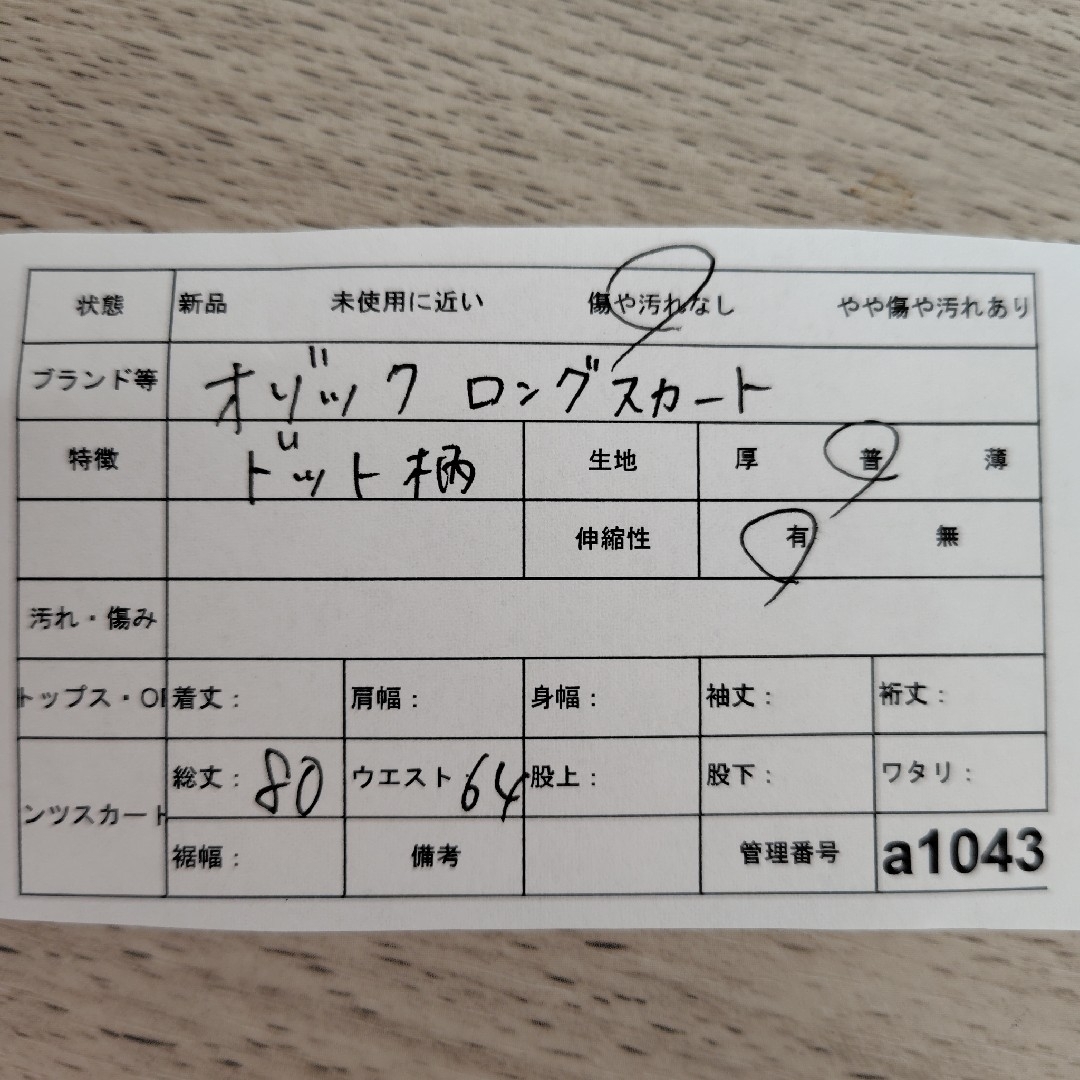 状態 新品 未使用に近い 傷や汚れなし やや傷や汚れあり
ブランド等 オゾック ロングスカート
特徴 ドット柄 生地 厚 普 薄
伸縮性 有 無
汚れ・傷み
トップス・O 着丈: 肩幅: 身幅: 袖丈: 裄丈:
ンツスカート 総丈: 80 ウエスト 64 股上: 股下: ワタリ:
裾幅: 備考 管理番号 a1043